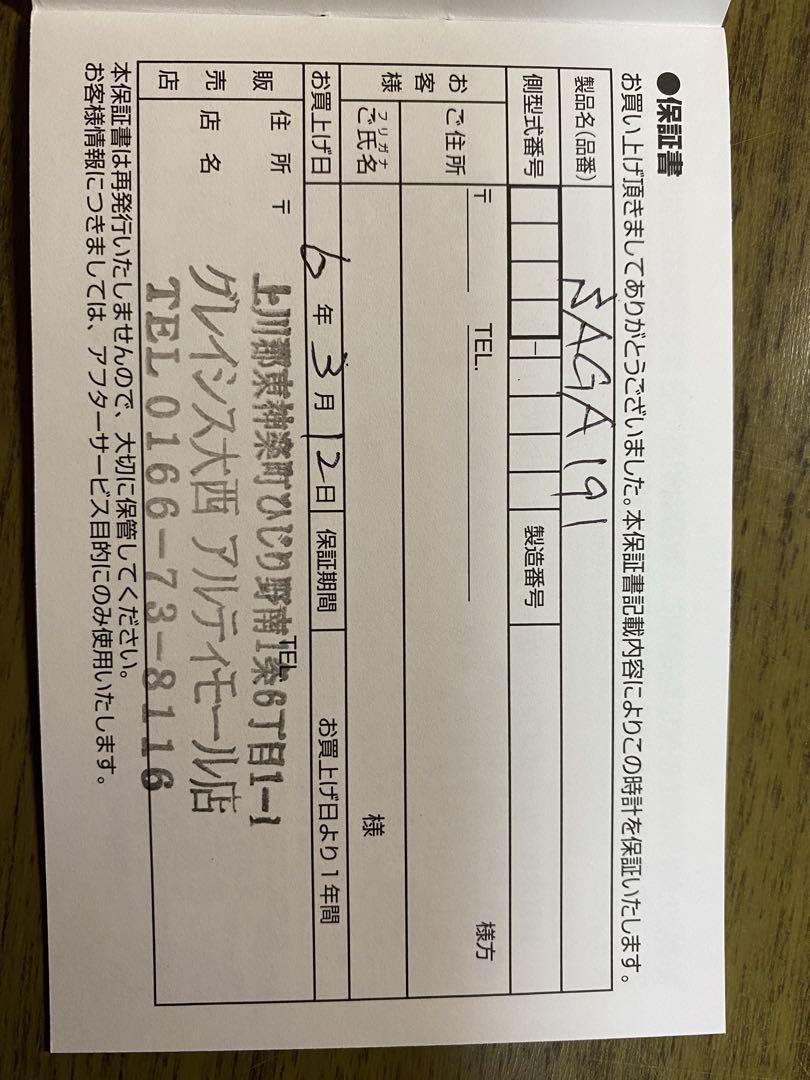 ●保証書
お買い上げ頂きましてありがとうございました。本保証書記載内容によりこの時計を保証いたします。
製品名(品番) SAGA191
側型式番号 － 製造番号
お客様 ご住所 〒 TEL. 様方
フリガナ
ご氏名 様
お買上げ日 6年3月12日 保証期間 お買上げ日より1年間
販売店 住所 〒 TEL.
上川郡東神楽町ひじり野南1条6丁目1-1
店名 グレイシス大西 アルティモール店
TEL 0166-73-8116
本保証書は再発行いたしませんので、大切に保管してください。
お客様情報につきましては、アフターサービス目的にのみ使用いたします。